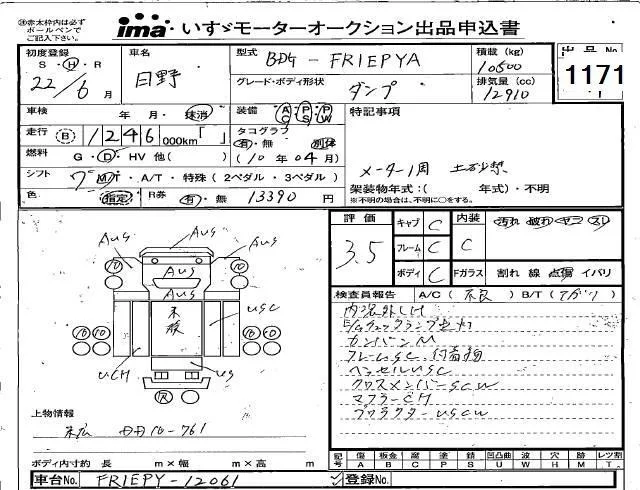 ※赤太枠内は必ずボールペンでご記入下さい。
ima いすゞモーターオークション出品申込書
初度登録 車名 型式 BDG - FRIEPYA 積載 (kg) 10500 出品 No
S・H・R 22/6 月 日野 グレード・ボディ形状 ダンプ 排気量 (cc) 12910 1171
車検 年 月・抹消 装備 AC PS PW 特記事項
走行 B 1246 000km「 」 タコグラフ 有・無 別体
燃料 G・D・HV 他( ) (10年04月) メーター1周 土砂禁
シフト 7 M/T・A/T・特殊(2ペダル・3ペダル) 架装物年式:( 年式)・不明
色 指定 R券 有・無 13390 円 ※不明の場合は、不明に○をする。
評価 3.5 キャブ C 内装 C 汚れ 破れ ヤコ スレ
フレーム C
ボディ C Fガラス 割れ 線 点傷 イバリ
検査員報告 A/C( 不良 ) B/T( )
内装
カンバンM
フレームSC
クロスメンバーSCW
マフラーCM
AUS
AUS AUS
AUS
AUS
USC
UCM US
R
上物情報
ボディ内寸約 長 m×幅 m×高 m
記号 傷 A 板金 B 腐 C 塗 P 錆 S 凹凸曲 U 波 W 穴 H 跡 M レツ割 T
車台No. FRIEPY-12061 登録No.